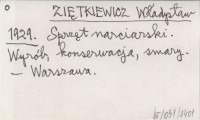 o
ZIĘTKIEWICZ Władysław
1929. Sprzęt narciarski.
Wyrób, konserwacja, smary.
— Warszawa.